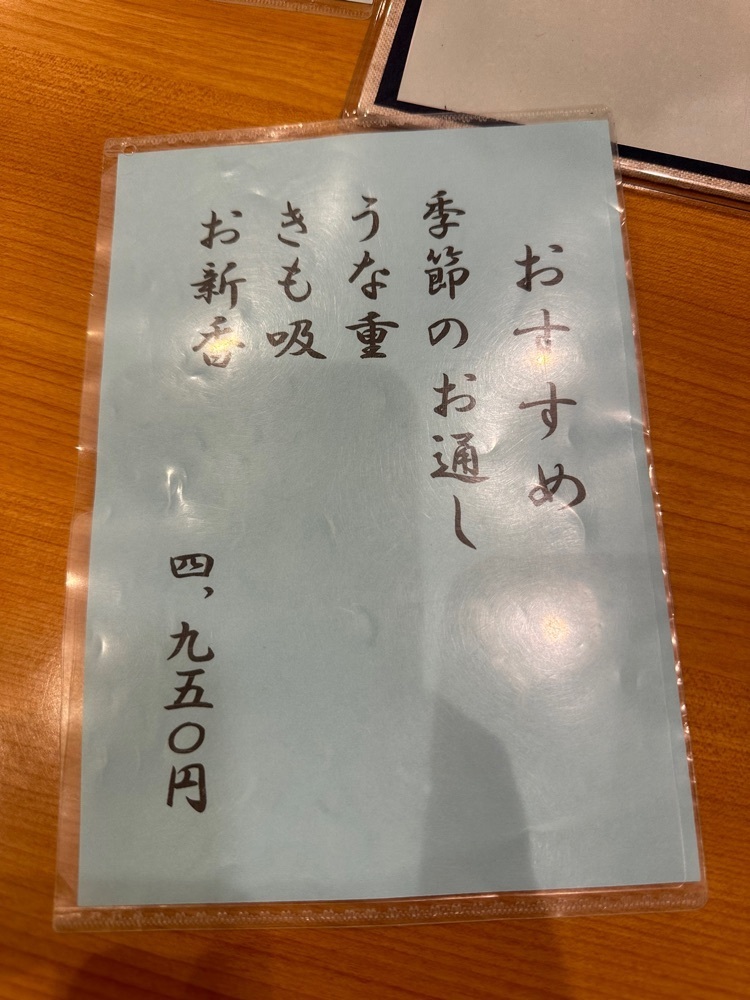 おすすめ
季節のお通し
うな重
きも吸
お新香
四、九五〇円